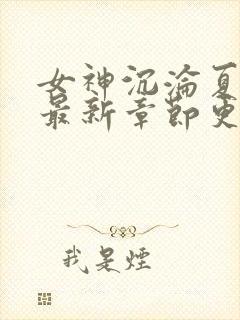 女神沉沦夏
最新章节更
我是煙